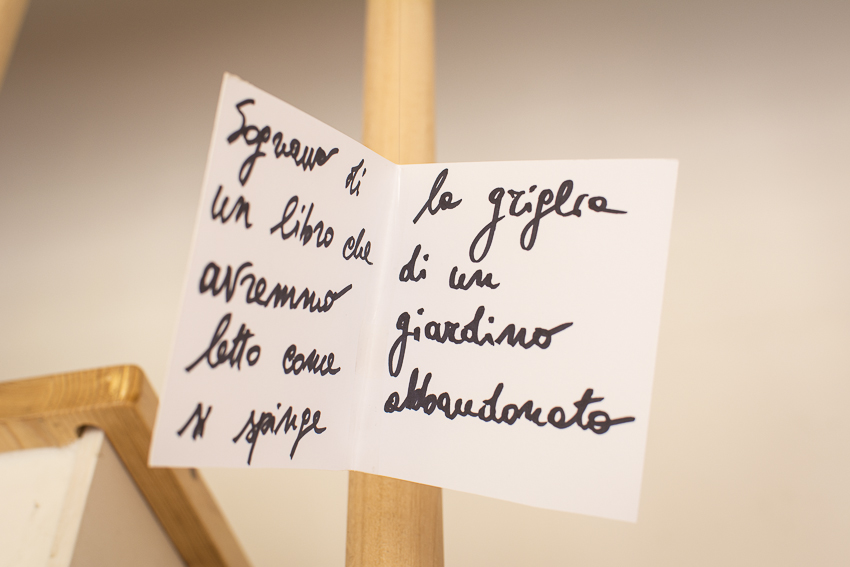 Sognavo di
un libro che
avremmo
letto come
si spinge
la griglia
di un
giardino
abbandonato